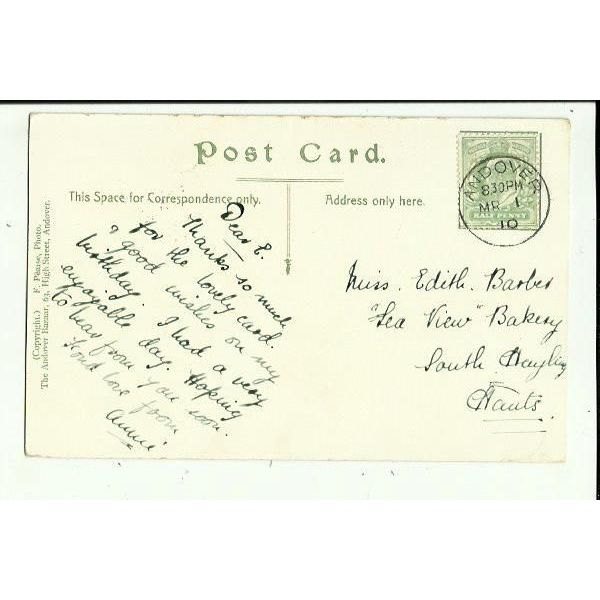 Post Card.
This Space for Correspondence only.
Address only here.
ANDOVER
8.30PM
MR 1
10
HALF PENNY
(Copyright.) F. Pearse, Photo,
The Andover Bazaar, 63, High Street, Andover.
Dear E.
Thanks so much
for the lovely card.
& good wishes on my
birthday. I had a very
enjoyable day. Hoping
to hear from you soon.
Fond love from
Annie
Miss. Edith. Barber
"Sea View" Bakery
South Hayling
Hants.